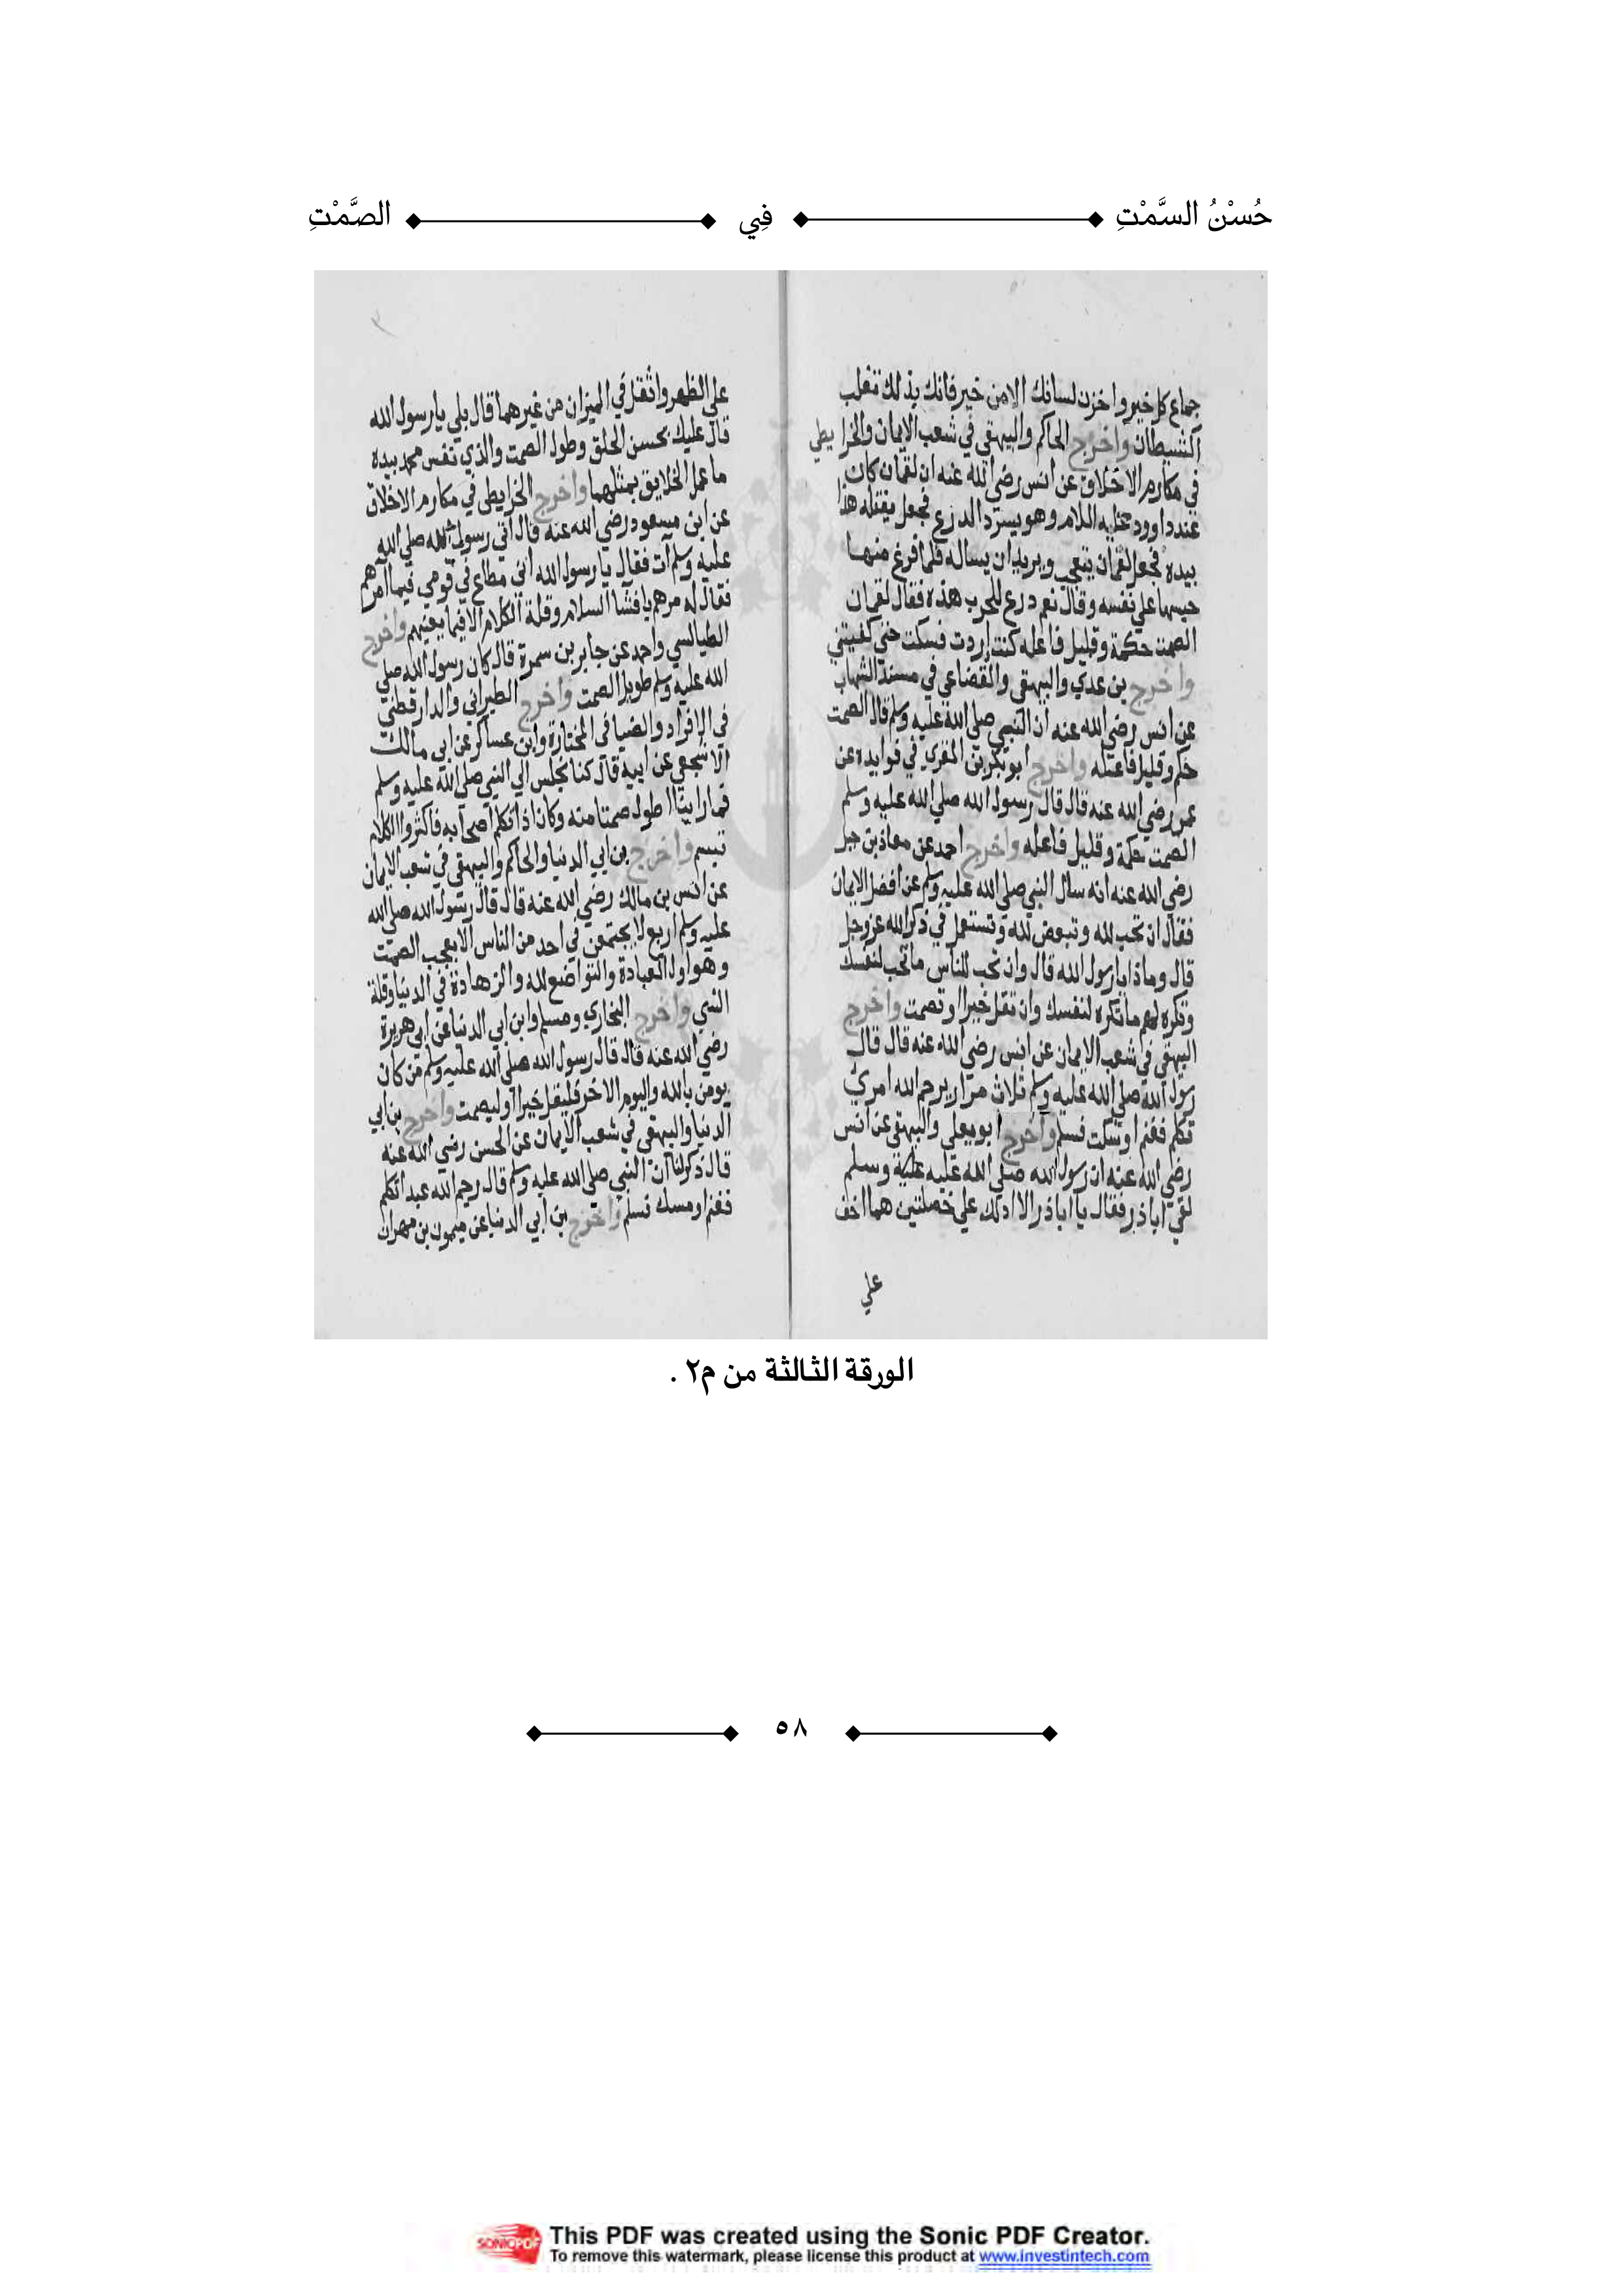 حُسْنُ السَّمْتِ فِي الصَّمْتِ
جماع كل خير واخزن لسانك الا من خير فانك بذلك تغلب
الشيطان واخرج الحاكم والبيهقي في شعب الايمان والخرايطي
في مكارم الاخلاق عن انس رضي الله عنه ان لقمان كان
عند داوود عليه السلام وهو يسرد الدرع فجعل يفتله هذا
بيده فجعل لقمان يتعجب ويريد ان يساله فلما فرغ منها
حبسها علي نفسه وقال نعم درع للحرب هذه فقال لقمان
الصمت حكمة وقليل فاعله كنت اردت فسكت حتي كفيتني
واخرج بن عدي والبيهقي والقضاعي في مسند الشهاب
عن انس رضي الله عنه ان النبي صلي الله عليه وسلم قال الصمت
حكم وقليل فاعله واخرج ابو بكر بن المقري في فوايده عن
عمر رضي الله عنه قال قال رسول الله صلي الله عليه وسلم
الصمت حكمة وقليل فاعله واخرج احمد عن معاذ بن جبل
رضي الله عنه انه سال النبي صلي الله عليه وسلم عن افضل الايمان
فقال ان تحب لله وتبغض لله وتستعمل في ذكر الله عز وجل
قال وماذا يا رسول الله قال وان تحب للناس ما تحب لنفسك
وتكره لهم ما تكره لنفسك وان تقل خيرا او تصمت واخرج
البيهقي في شعب الايمان عن انس رضي الله عنه قال قال
رسول الله صلي الله عليه وسلم ثلاث مرار يرحم الله امرئ
تكلم فغنم او سكت فسلم واخرج ابو يعلي والبيهقي عن انس
رضي الله عنه ان رسول الله صلي الله عليه وسلم
لقي اباذر فقال يا اباذر الا ادلك علي خصلتين هما اخف
علي
علي الظهر واثقل في الميزان من غيرهما قال بلي يا رسول الله
قال عليك بحسن الخلق وطول الصمت والذي نفس محمد بيده
ما عمل الخلايق بمثلهما واخرج الخرايطي في مكارم الاخلاق
عن ابن مسعود رضي الله عنه قال اتي رسول الله صلي الله
عليه وسلم آت فقال يا رسول الله اني مطاع في قومي فيما آمرهم
فقال له مرهم بافشا السلام وقلة الكلام الا فيما يعنيهم واخرج
الطيالسي واحمد عن جابر بن سمرة قال كان رسول الله صلي
الله عليه وسلم طويل الصمت واخرج الطبراني والدارقطني
في الافراد والضيا في المختارة وابن عساكر عن ابي مالك
الاشجعي عن ابيه قال كنا نجلس الي النبي صلي الله عليه وسلم
فما راينا اطول صمتا منه وكان اذا تكلم اصحابه فاكثروا الكلام
تبسم واخرج بن ابي الدنيا والحاكم والبيهقي في شعب الايمان
عن انس بن مالك رضي الله عنه قال قال رسول الله صلي الله
عليه وسلم اربع لا يجتمعن في احد من الناس الا بعجب الصمت
وهو اول العبادة والتواضع لله والزهادة في الدنيا وقلة
الشي واخرج البخاري ومسلم وابن ابي الدنيا عن ابي هريرة
رضي الله عنه قال قال رسول الله صلي الله عليه وسلم من كان
يومن بالله واليوم الاخر فليقل خيرا او ليصمت واخرج بن ابي
الدنيا والبيهقي في شعب الايمان عن الحسن رضي الله عنه
قال ذكر لنا ان النبي صلي الله عليه وسلم قال رحم الله عبدا تكلم
فغنم او مسك فسلم واخرج بن ابي الدنيا عن ميمون بن مهران
الورقة الثالثة من م٢ .
٥٨
SONICPDF
This PDF was created using the Sonic PDF Creator.
To remove this watermark, please license this product at www.investintech.com